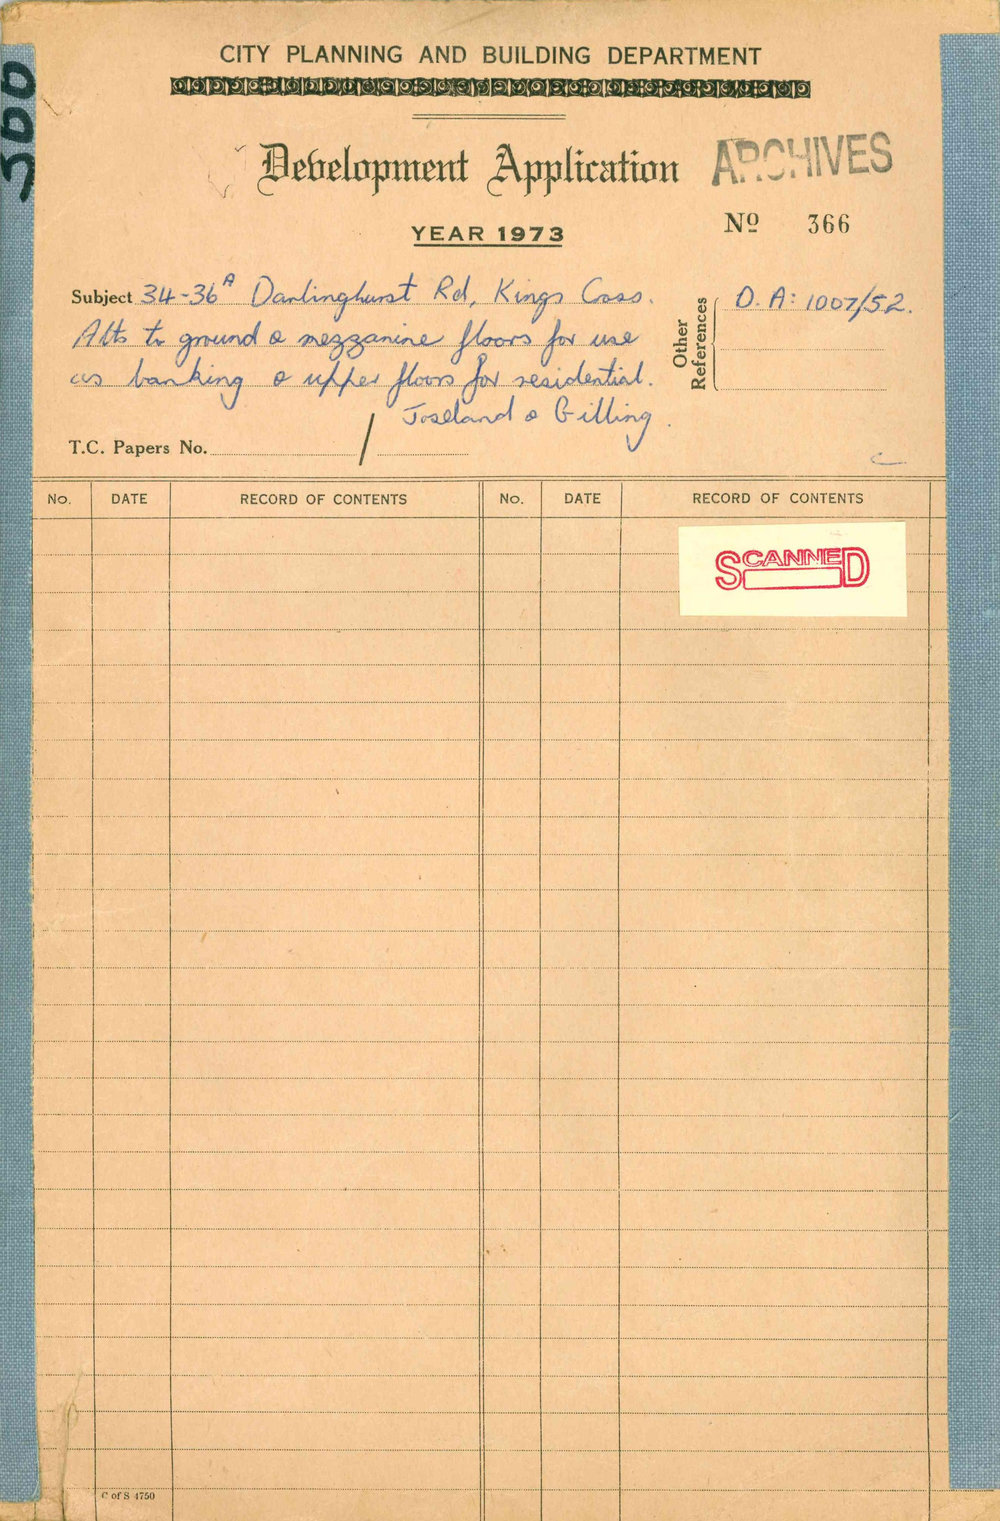 CITY PLANNING AND BUILDING DEPARTMENT
Development Application
ARCHIVES
YEAR 1973
Nº 366
366
Subject 34-36A Darlinghurst Rd, Kings Cross.
Alts to ground & mezzanine floors for use
as banking & upper floors for residential.
Joseland & Gilling.
Other References
D.A: 1007/52.
T.C. Papers No. /
No. DATE RECORD OF CONTENTS No. DATE RECORD OF CONTENTS
SCANNED
C of S 4750